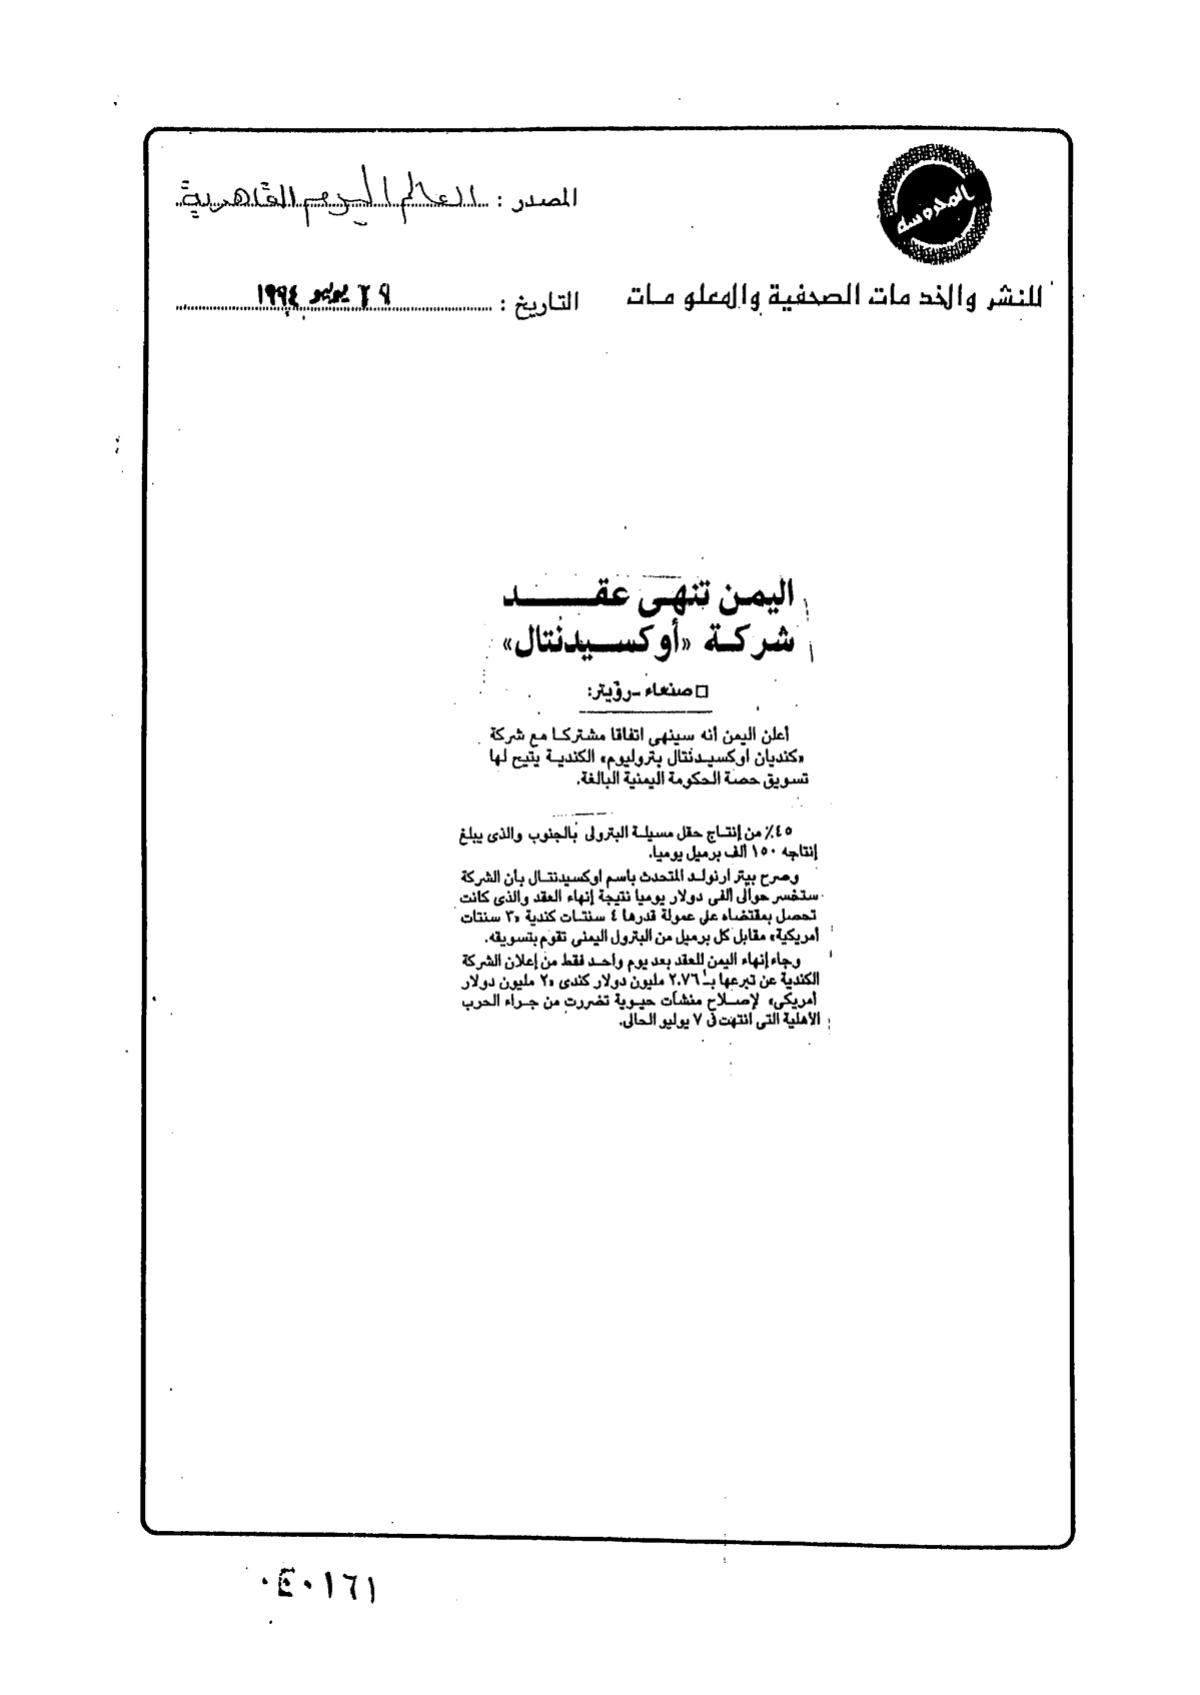 المحروسة
المصدر : العالم اليوم القاهرية
للنشر والخدمات الصحفية والمعلومات
التاريخ : ٢٩ يوليو ١٩٩٤
اليمن تنهى عقد
شركة «أوكسيدنتال»
□ صنعاء - رؤيتر:
أعلن اليمن أنه سينهى اتفاقا مشتركا مع شركة
«كنديان اوكسيدنتال بتروليوم» الكندية يتيح لها
تسويق حصة الحكومة اليمنية البالغة.
٤٥٪ من إنتاج حقل مسيلة البترولى بالجنوب والذى يبلغ
إنتاجه ١٥٠ ألف برميل يوميا.
وصرح بيتر ارنولد المتحدث باسم اوكسيدنتال بأن الشركة
ستخسر حوالى ألفى دولار يوميا نتيجة إنهاء العقد والذى كانت
تحصل بمقتضاه على عمولة قدرها ٤ سنتات كندية «٣ سنتات
أمريكية» مقابل كل برميل من البترول اليمنى تقوم بتسويقه.
وجاء إنهاء اليمن للعقد بعد يوم واحد فقط من إعلان الشركة
الكندية عن تبرعها بـ ٢.٧٦ مليون دولار كندى «٢ مليون دولار
أمريكى» لإصلاح منشآت حيوية تضررت من جراء الحرب
الأهلية التى انتهت فى ٧ يوليو الحالى.